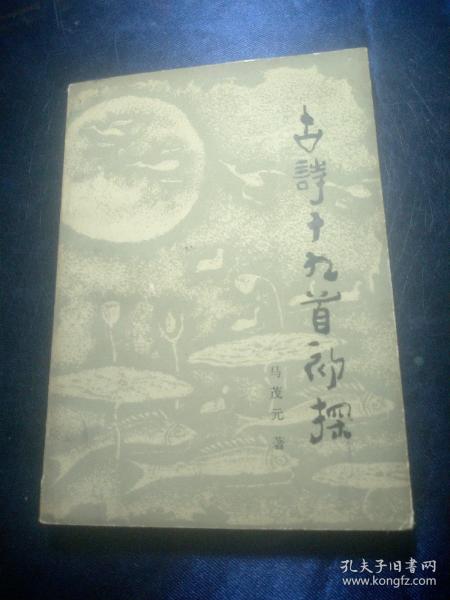 古詩十九首初探
马茂元 著
孔夫子旧书网
www.kongfz.com